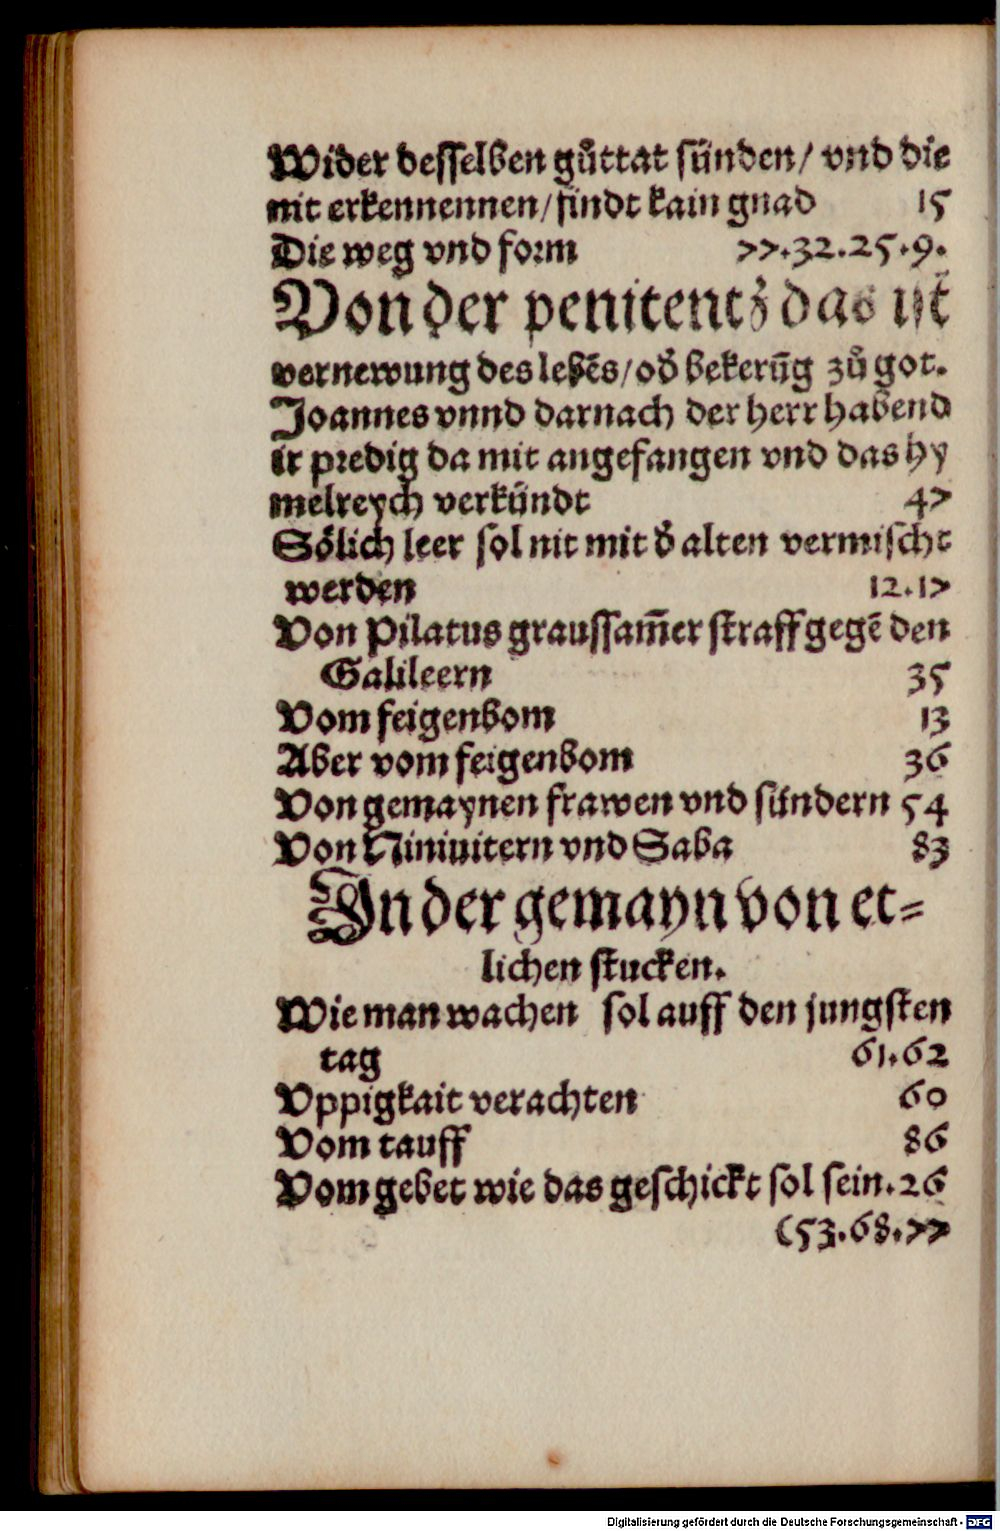 Wider desselben gůttat sünden/ vnd die
nit erkennennen/findt kain gnad 15
Die weg vnd form 77.32.25.9.
Von der penitentz das ist
vernewung des lebẽs/od̕ bekerũg zů got.
Joannes vnnd darnach der herr habend
ir predig da mit angefangen vnd das hy
melreych verkündt 47
Sölich leer sol nit mit d̕ alten vermischt
werden 12.17
Von Pilatus graussam̃er straff gegẽ den
Galileern 35
Vom feigenbom 13
Aber vom feigenbom 36
Von gemaynen frawen vnd sündern 54
Von Niniuitern vnd Saba 83
In der gemayn von et=
lichen stucken.
Wie man wachen sol auff den jungsten
tag 61.62
Vppigkait verachten 60
Vom tauff 86
Vom gebet wie das geschickt sol sein. 26
(53.68.77
Digitalisierung gefördert durch die Deutsche Forschungsgemeinschaft - DFG